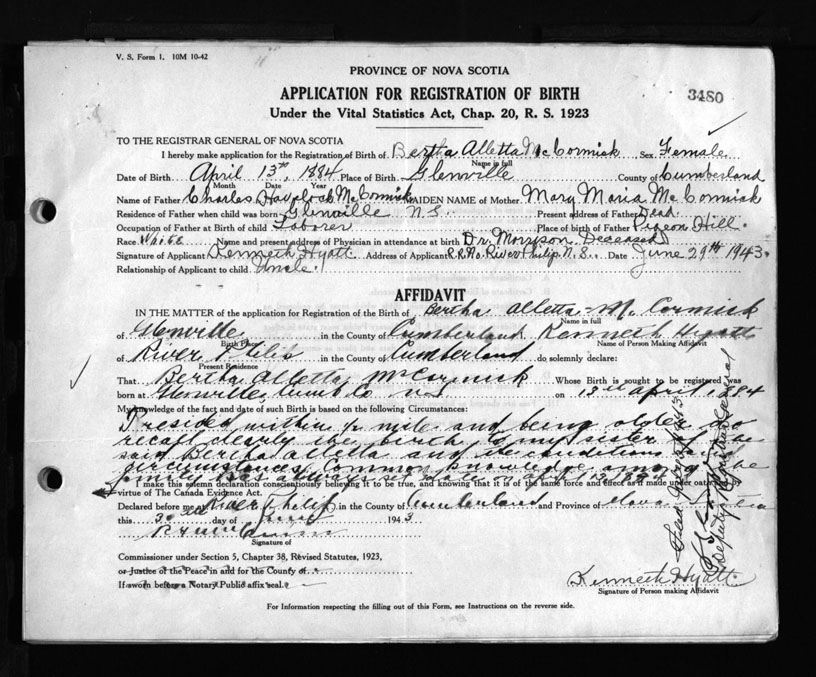 V. S. Form 1. 10M 10-42
PROVINCE OF NOVA SCOTIA
APPLICATION FOR REGISTRATION OF BIRTH
3480
Under the Vital Statistics Act, Chap. 20, R. S. 1923
TO THE REGISTRAR GENERAL OF NOVA SCOTIA
I hereby make application for the Registration of Birth of Bertha Alletta McCormick Sex Female
Name in full
Date of Birth April 13th, 1884 Place of Birth Glenville County of Cumberland
Month Date Year
Name of Father Charles Havelock McCormick MAIDEN NAME of Mother Mary Maria McCormick
Residence of Father when child was born Glenville N.S. Present address of Father Dead.
Occupation of Father at Birth of child Laborer Place of Birth of Father Pigeon Hill.
Race White Name and present address of Physician in attendance at birth Dr. Morrison, Deceased
Signature of Applicant Kenneth Hyatt Address of Applicant R.R. No. River Philip N.S. Date June 29th 1943.
Relationship of Applicant to child Uncle.
AFFIDAVIT
IN THE MATTER of the application for Registration of the Birth of Bertha Alletta McCormick
Name in full
of Glenville in the County of Cumberland, Kenneth Hyatt
Birth Place Name of Person Making Affidavit
of River Philip in the County of Cumberland do solemnly declare:
Present Residence
That Bertha Alletta McCormick Whose Birth is sought to be registered was
born at Glenville, Cumb Co N.S on 13th April, 1884
My knowledge of the fact and date of such Birth is based on the following Circumstances:
I resided within ½ mile and being older do
recall clearly the birth to my sister of the
said Bertha Alletta and the conditions and
circumstances. Common knowledge among the
family has always set date as April 13, 1884
I make this solemn declaration conscientiously believing it to be true, and knowing that it is of the same force and effect as if made under oath by
virtue of The Canada Evidence Act.
Declared before me at River Philip in the County of Cumberland and Province of Nova Scotia
this 3rd day of 1943
Signature of
Commissioner under Section 5, Chapter 38, Revised Statutes, 1923,
or Justice of the Peace in and for the County of
If sworn before a Notary Public affix seal.
Kenneth Hyatt
Signature of Person making Affidavit
For Information respecting the filling out of this Form, see Instructions on the reverse side.
Deputy Registrar General